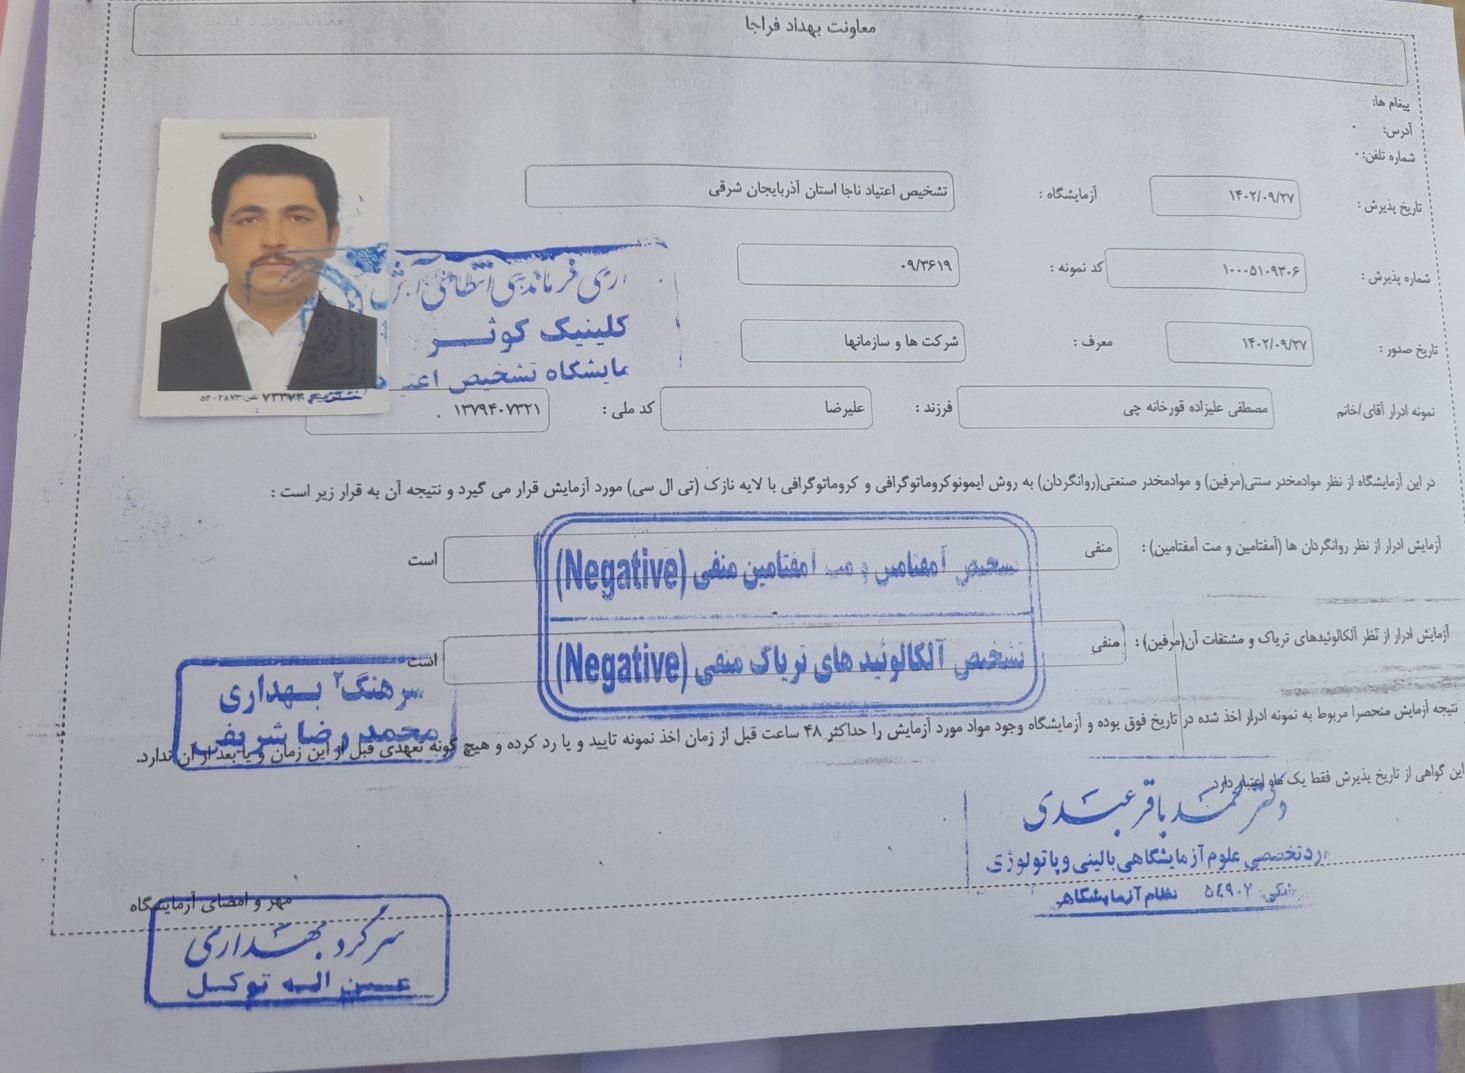 معاونت بهداد فراجا
پیغام ها:
آدرس:
شماره تلفن:
تاریخ پذیرش : ۱۴۰۲/۰۹/۲۷ آزمایشگاه : تشخیص اعتیاد ناجا استان آذربایجان شرقی
شماره پذیرش : ۱۰۰۰۵۱۰۹۳۰۶ کد نمونه : ۰۹/۳۶۱۹
تاریخ صدور : ۱۴۰۲/۰۹/۲۷ معرف : شرکت ها و سازمانها
فرماندهی انتظامی
کلینیک کوثر
مایشگاه تشخیص
نمونه ادرار آقای/خانم مصطفی علیزاده قورخانه چی فرزند : علیرضا کد ملی : ۱۳۷۹۴۰۷۳۲۱
در این آزمایشگاه از نظر موادمخدر سنتی(مرفین) و موادمخدر صنعتی(روانگردان) به روش ایمونوکروماتوگرافی و کروماتوگرافی با لایه نازک (تی ال سی) مورد آزمایش قرار می گیرد و نتیجه آن به قرار زیر است :
آزمایش ادرار از نظر روانگردان ها (آمفتامین و مت آمفتامین) : منفی است
تشخیص آمفتامین و مت آمفتامین منفی (Negative)
آزمایش ادرار از نظر آلکالوئیدهای تریاک و مشتقات آن(مرفین) : منفی است
تشخیص آلکالوئید های تریاک منفی (Negative)
سرهنگ۲ بهداری
محمدرضا شریفی
نتیجه آزمایش منحصرا مربوط به نمونه ادرار اخذ شده در تاریخ فوق بوده و آزمایشگاه وجود مواد مورد آزمایش را حداکثر ۴۸ ساعت قبل از زمان اخذ نمونه تایید و یا رد کرده و هیچ گونه تعهدی قبل از این زمان و یا بعد از آن ندارد.
این گواهی از تاریخ پذیرش فقط یک ماه اعتبار دارد
دکتر محمد باقر عبدی
تخصصی علوم آزمایشگاهی بالینی و پاتولوژی
۵۴۹۰۲ نظام
مهر و امضای آزمایشگاه
سرگرد بهداری
عین اله توکل